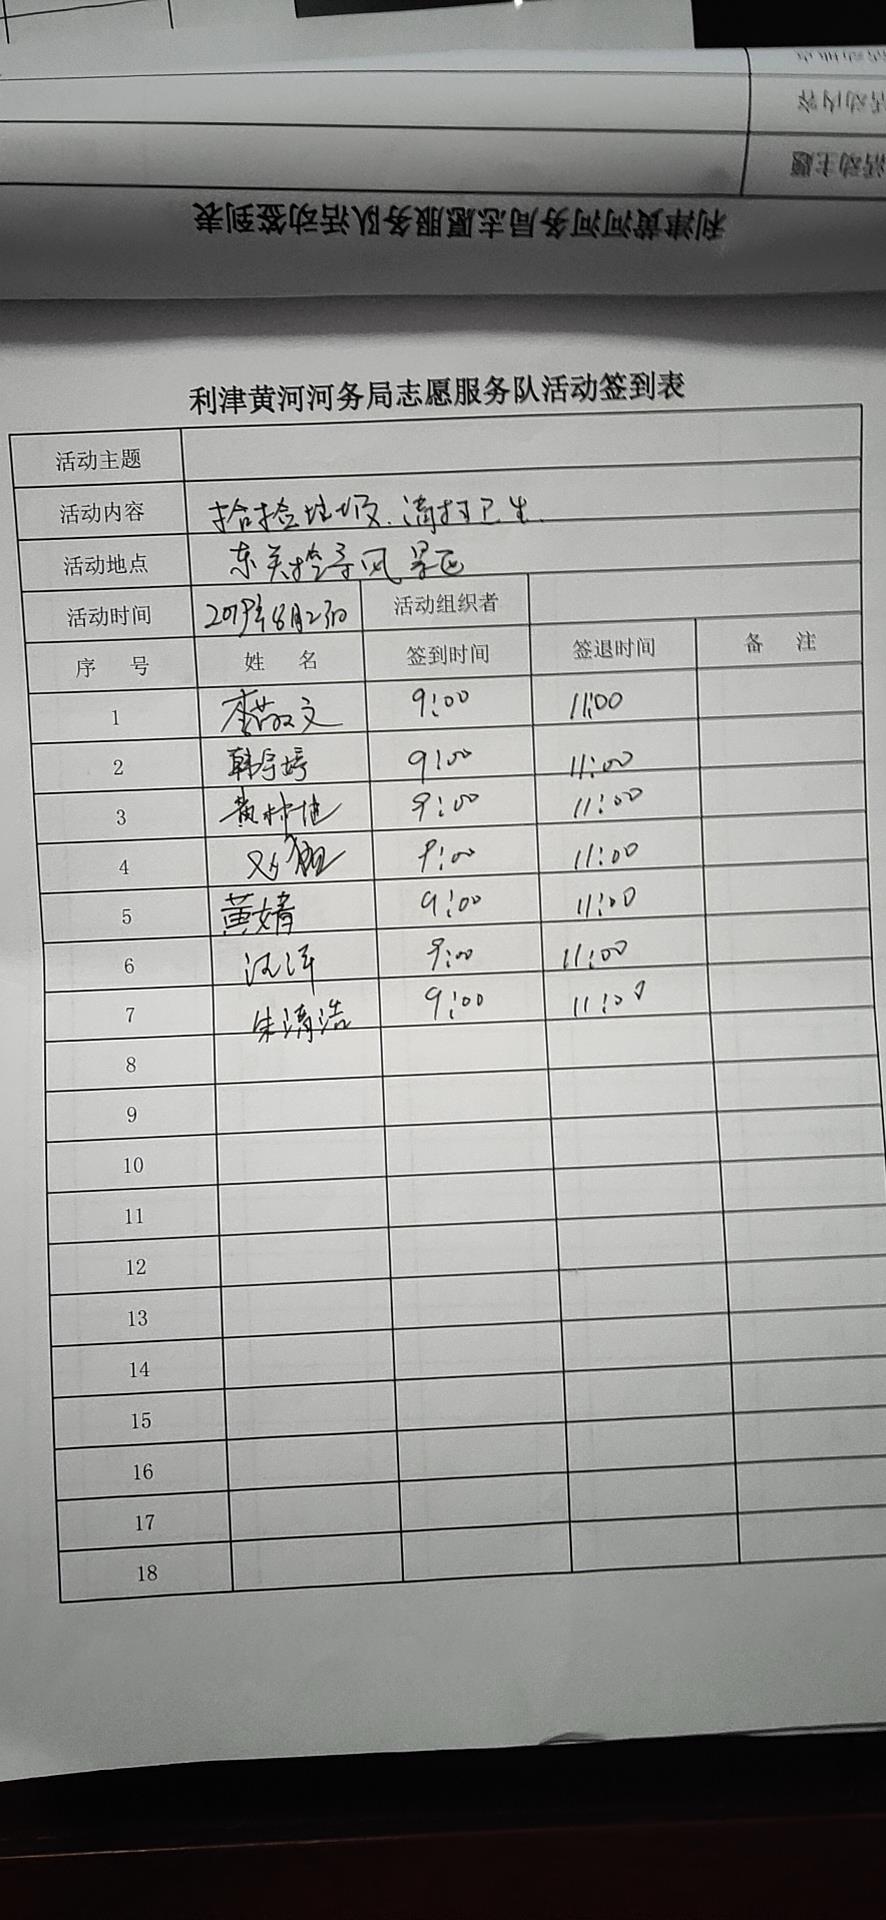 活动内容
活动主题
利津黄河河务局志愿服务队活动签到表
利津黄河河务局志愿服务队活动签到表
活动主题
活动内容 拾捡垃圾.清扫卫生.
活动地点 东关控导风景区
活动时间 2019年8月23日 活动组织者
序 号 姓 名 签到时间 签退时间 备 注
1 李敬文 9:00 11:00
2 韩宇婷 9:00 11:00
3 黄林佳 9:00 11:00
4 刘 9:00 11:00
5 黄婧 9:00 11:00
6 汉洋 9:00 11:00
7 朱清浩 9:00 11:00
8
9
10
11
12
13
14
15
16
17
18